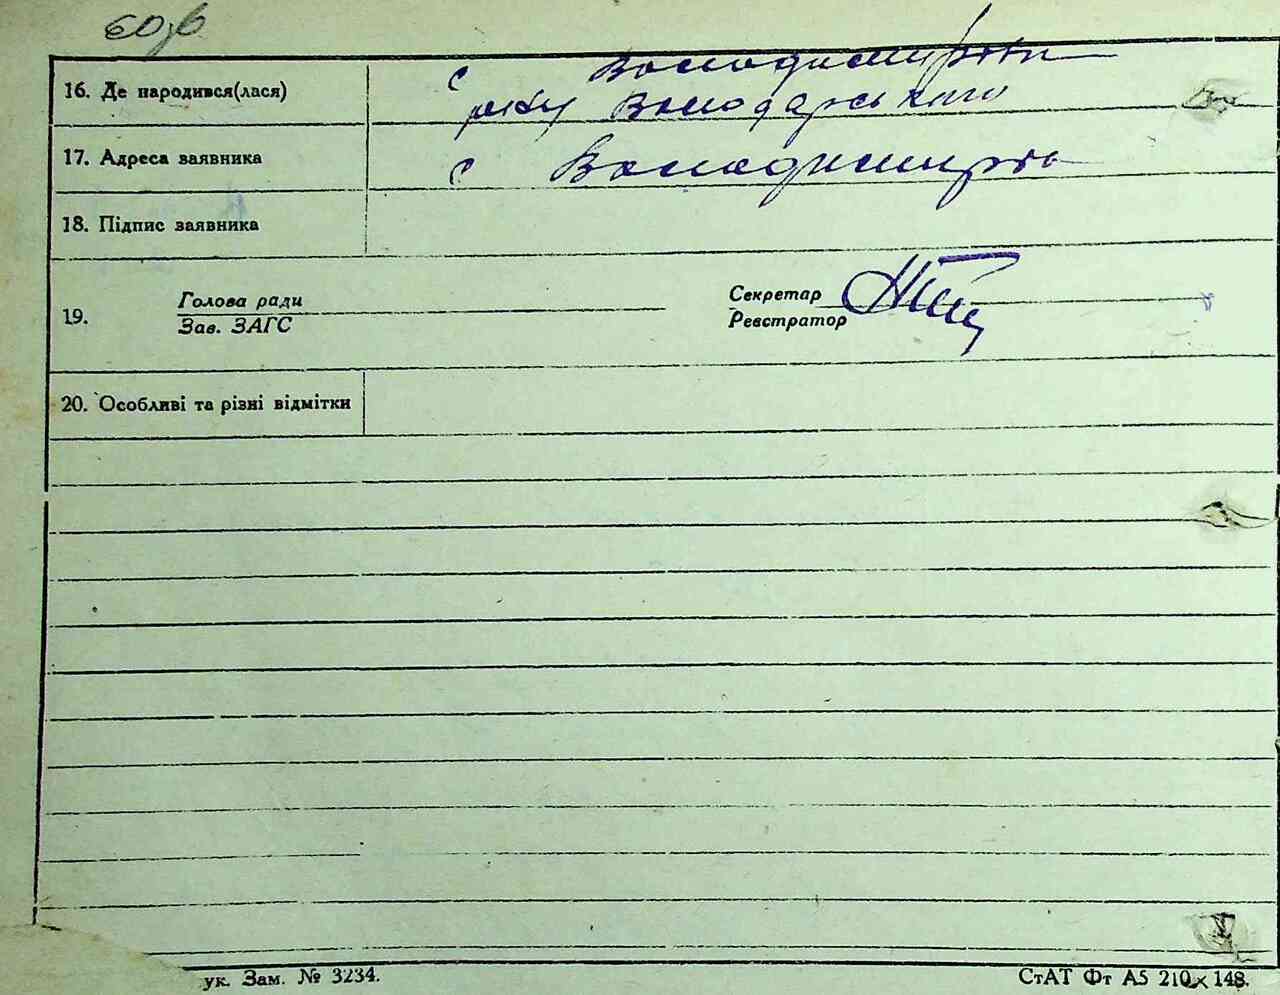 60зв
16. Де народився(лася) с Володимирівки
р-ну Володарського
17. Адреса заявника с Володимирівка
18. Підпис заявника
19. Голова ради
Зав. ЗАГС
Секретар
Реєстратор
20. Особливі та різні відмітки
ук. Зам. № 3234.
СтАТ Фт А5 210 × 148.